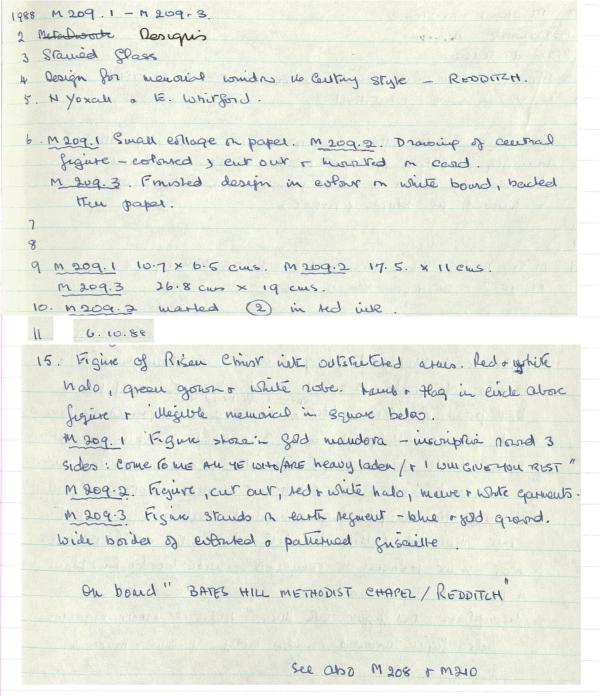 1988 M 209.1 - M 209.3.
2 Designs
3 Stained Glass
4 Design for memorial window 16 Century style - REDDITCH.
5. N Yoxall & E. Whitford.
6. M 209.1 Small collage on paper. M 209.2. Drawing of central
figure - coloured & cut out & mounted on card.
M 209.3. Finished design in colour on white board, backed
paper.
7
8
9 M 209.1 10.7 x 6.5 cms. M 209.2 17.5. x 11 cms.
M 209.3 26.8 cms x 19 cms.
10. M 209.2 marked 2 in red ink.
11 6.10.88
15. Figure of Risen Christ with outstretched arms. Red & white
halo, green gown & white robe. Lamb & flag in circle above
figure & illegible memorial in square below.
M 209.1 Figure gold mandora - inscription round 3
sides: COME TO ME ALL YE WHO/ARE heavy laden/& I WILL GIVE YOU REST"
M 209.2. Figure, cut out, red & white halo, mauve & white garments.
M 209.3 Figure stands on earth segment - blue & gold ground.
Wide border of coloured & patterned grisaille.
On board " BATES HILL METHODIST CHAPEL / REDDITCH"
See also M 208 & M210